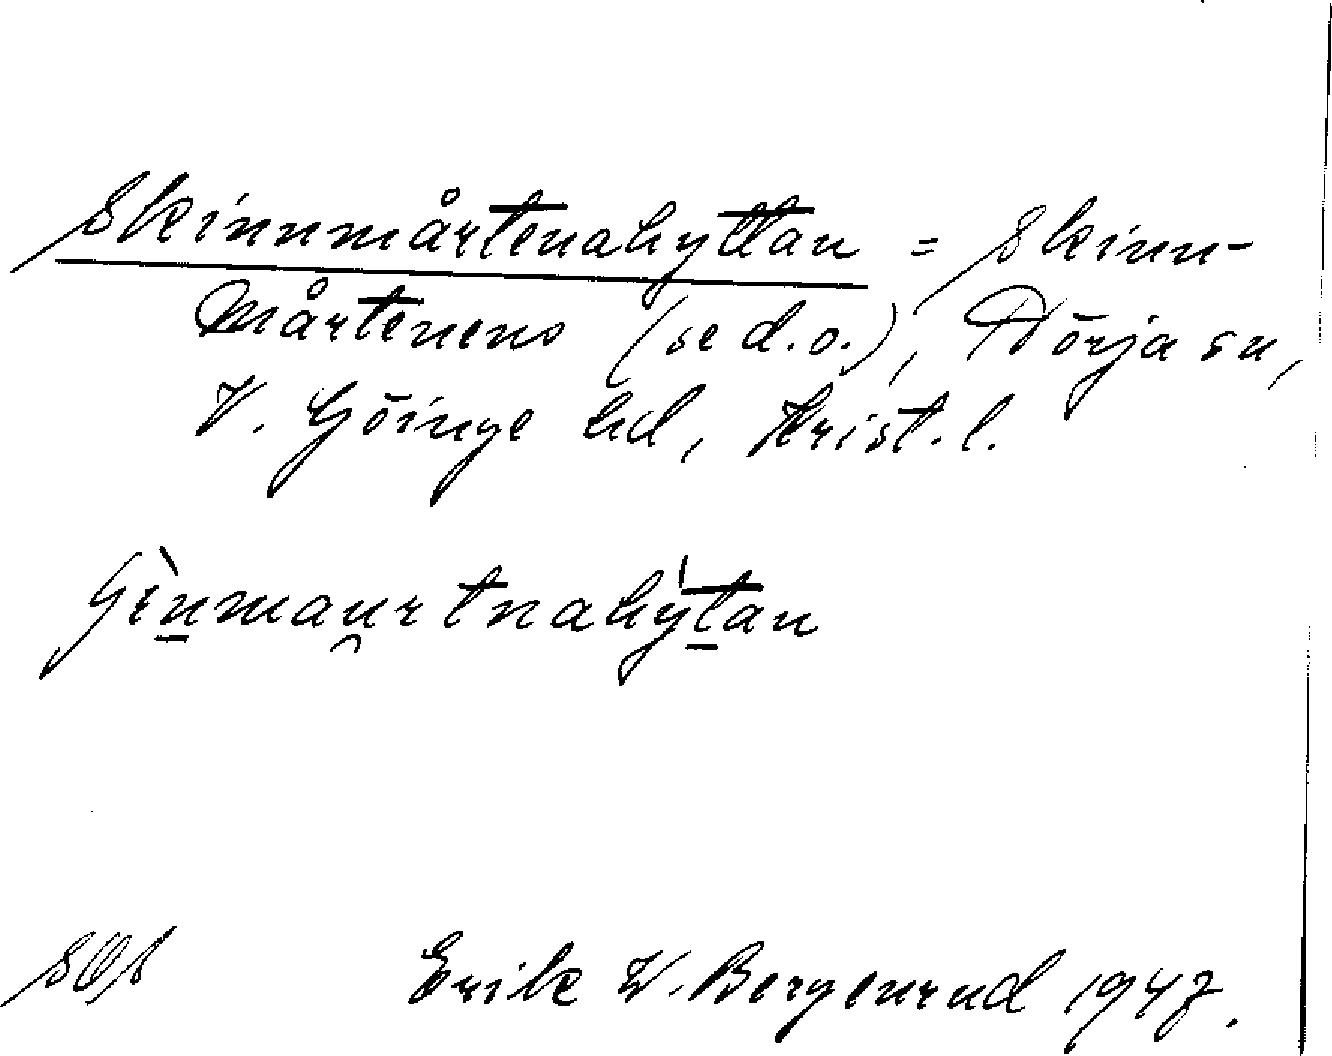 Skinnmårtenahyttan = Skinn-
Mårtenens (se d.o.), Nörja sn,
V. Göinge hd, Krist. l.
hytan
Erik W. Bergenrud 1947.